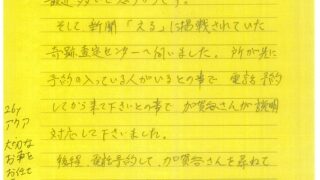 そして新聞「える」に掲載されていた
査定センターへ伺いました。所が先に
予約の入っている人がいるとの事で電話予約
してから来て下さいとの事で加賀谷さんが説明
対応して下さいました。
後程、電話予約して、加賀谷さんを尋ねて
26y
アクア
大切な
お車を
お任せ